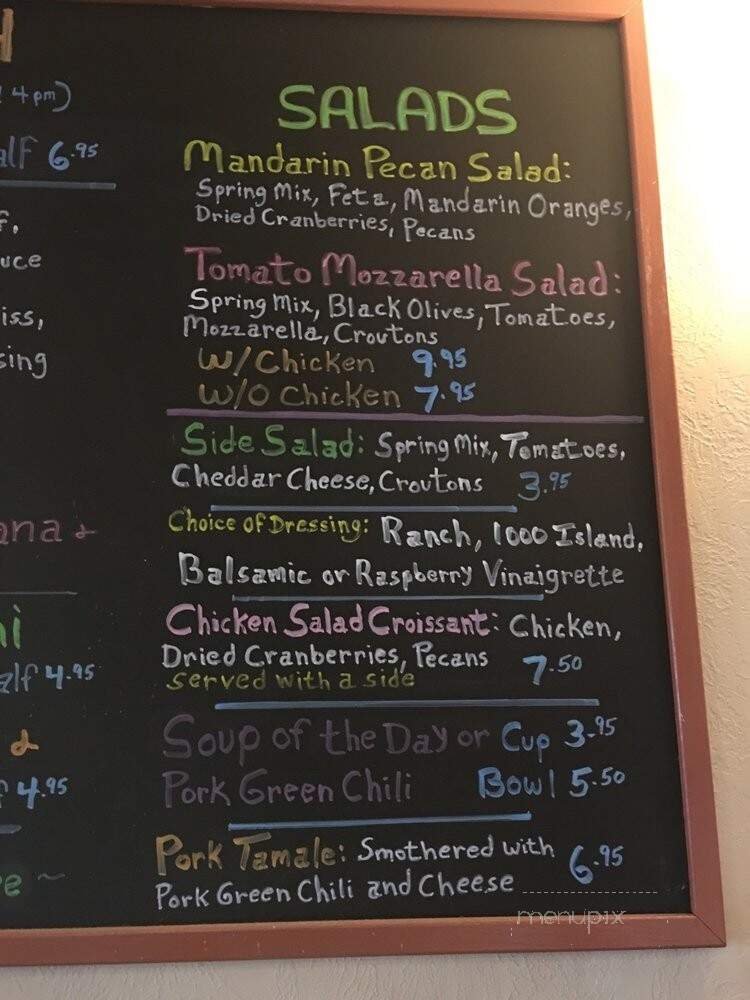 4 pm)
alf 6.95
f.
uce
iss,
sing
ana &
alf 4.95
&
4.95
e ~
SALADS
Mandarin Pecan Salad:
Spring Mix, Feta, Mandarin Oranges,
Dried Cranberries, Pecans
Tomato Mozzarella Salad:
Spring Mix, Black Olives, Tomatoes,
Mozzarella, Croutons
W/Chicken 9.95
W/O Chicken 7.95
Side Salad: Spring Mix, Tomatoes,
Cheddar Cheese, Croutons 3.95
Choice of Dressing: Ranch, 1000 Island,
Balsamic or Raspberry Vinaigrette
Chicken Salad Croissant: Chicken,
Dried Cranberries, Pecans 7.50
served with a side
Soup of the Day or Cup 3.95
Pork Green Chili Bowl 5.50
Pork Tamale: Smothered with 6.95
Pork Green Chili and Cheese
menupix